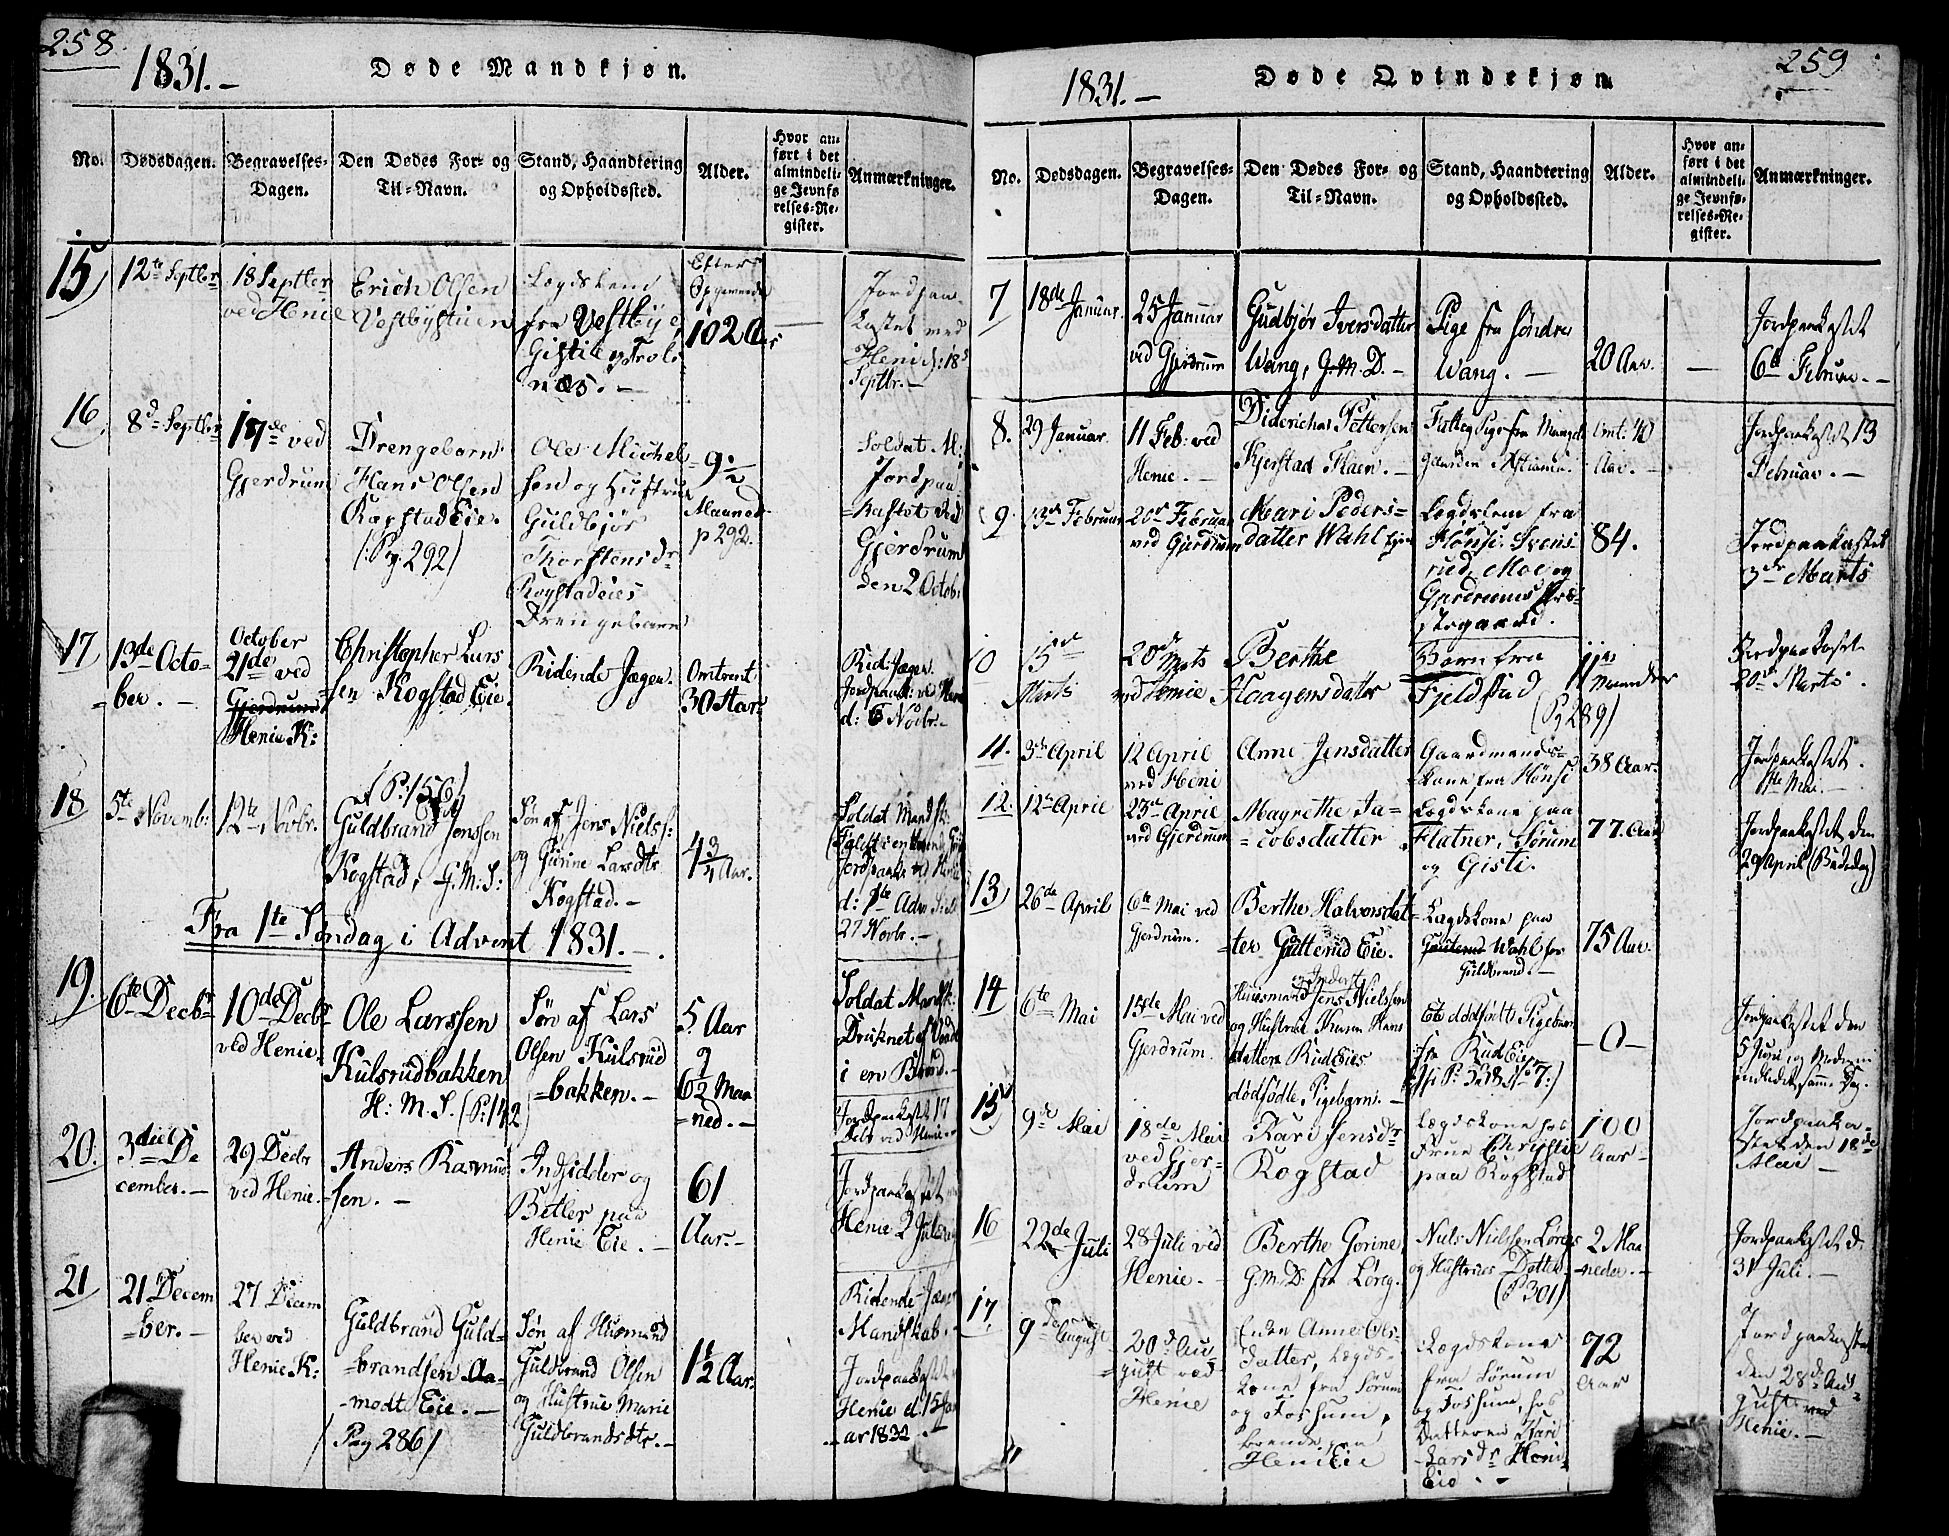 258.
1831.-
Døde Mandkjøn.
No.
Dødsdagen.
Begravelses-
Dagen.
Den Dødes For- og
Til-Navn.
Stand, Haandtering
og Opholdssted.
Alder.
Hvor an-
ført i det
almindeli-
ge Jevnfø-
relses-Re-
gister.
Anmærkninger.
15
12te Septbr
18 Septbr
ved Henie
Erich Olsen
Vestbystuen
Lægdslem
fra Vestbye
Gisti og Trol-
næs.-
Efter
Opgivende
102 Aar
Jordpaa-
kastet ved
Henie d: 18
Septbr.-
16
8d Septbr
17de ved
Gjerdrum
Drengebarn
Hans Olsen
Kogstad Eie.
(Pg. 292)
Ole Michel-
sen og Hustrue
Guldbjør
Thorstensdr
Kogstadeies
Drengebarn
9 1/2
Maaned
p 292.
Soldat M:
Jordpaa-
kastet ved
Gjerdrum
den 2 Octob.
17
13de Octo-
ber.-
October
21de ved
Gjerdrum
Henie K:
Christopher Lars
sen Kogstad Eie.
Ridende Jæger.
Omtrent
30 Aar
Rid: Jæger.
Jordpaak: ved Henie
d: 6 Novbr.-
18
5te Novemb:
12te Novbr.
(P: 156)
Guldbrand Jenssen
Kogstad, G.M.S:
Søn af Jens Niels:
og Gurine Larsdtr
Kogstad.-
4 3/4 Aar.
Soldat Mandsk:
Jordpaak: ved Henie
d: 1te Adv:
27 Novbr.-
Fra 1te Søndag i Advent 1831.-
19.
6te Decbr
10de Decbr
ved Henie.
Ole Larssen
Kulsrudbakken
H: M. S. (P: 142)
Søn af Lars
Olsen Kulsrud
=bakken.-
5 Aar
9
6 1/2 Maa
=ned.-
Soldat Mandsk:
Druknet
i en Brønd.-
Jordpaakastet 17
Decbr ved Henie.-
20.
3die De
cember.-
29 Decbr
ved Henie.-
Anders Rasmus
sen.-
Indsidder og
Betler paa
Henie Eie.-
61
Aar.-
Jordpaakastet
Henie 2 Juledag
21
21 Decem
=ber.-
27 Decem
ber ved
Henie K:
Guldbrand Guld-
=brandsen Aa-
-modt Eie.-
(Pag 286)
Søn af Husmand
Guldbrand Olsen
og Hustrue Marie
Guldbrandsdtr.-
1 1/2 Aar.
Ridende Jæger
Mandskab.-
Jordpaakastet
Henie d. 15 Jan
-uar 1832.-
259
1831.-
Døde Qvindekjøn
No.
Dødsdagen.
Begravelses-
Dagen.
Den Dødes For- og
Til-Navn.
Stand, Haandtering
og Opholdssted.
Alder.
Hvor an-
ført i det
almindeli-
ge Jevnfø-
relses-Re-
gister.
Anmærkninger.
7
18de Januar.
25 Januar
ved Gjerdrum
Gudbjør Iversdatter
Wang, G.M.D.-
Pige fra Søndre
Wang.-
20 Aar.
Jordpaakastet
6te Februar.-
8.
29 Januar.
11 Feb: ved
Henie.-
Diderichas Pettersen
Kjerstad Flaen.-
Fattig Pige fra
Omt: 40
Aar.-
Jordpaakastet 13
Februar.-
9.
13de Februar
20de Februar
ved Gjerdrum
Mari Peders-
datter Wahl
Lægdslem fra
Hønsi, Svens
rud, Moe og
Gjerdrums Præ-
stegaard.
84.
Jordpaakastet
3de Marts
10
15de
Marts
20de Marts
ved Henie
Berthe
Haagensdatter
Barn fra
Fjeldstad
(Pg 289)
11
Maaneder
Jordpaakast.
20de Marts.
11.
3de April
12 April
ved Heni
Anne Jensdatter
Gaardmands-
kone fra Hønsi
38 Aar.
Jordpaakastet.
1te Mai.-
12.
12te April
23de April
ved Gjerdrum
Magrethe Ja-
=cobsdatter.
Lægdskone paa
Flatner, Sørum
og Gisti.
77 Aar
Jordpaakastet den
29 April (Bededag)
13
26de April
6te Mai ved
Gjerdrum.
Berthe Halvorsdat-
=ter Gutterud Eie.
Lægdskone paa
Gutterud Wahl for
Guldbrand.-
75 Aar.
14
6te Mai
15de Mai ved
Gjerdrum.
Huusmand Jens Nielsen
og Hustrue Karen Hans
datters Rud Eies
dødfødte Pigebarn.-
Et dødfødt Pigebarn
fra Rud Eie
-0-
Jordpaakastet den
5 Juni
15
9de Mai
18de Mai
ved Gjer-
drum
Kari Jensdr
Kogstad
Lægdskone hos
Frue Christie
paa Kogstad
100
Aar-
Jordpaaka-
stet den 18de
Mai-
16
22de Juli
28 Juli ved
Henie.-
Berthe Gorine
G.M.D. fra Løreg.
Niels Nielsen Løregs
og Hustrues Datter.
(P 301)
2 Maa
neder.-
Jordpaakastet d.
31 Juli.-
17
9de
August
20de Au-
gust ved
Henie
Enken Anne Ols-
datter, Lægds-
kone fra Sørum
og Fossum,
boende paa
Heni Eie
Lægdskone
fra Sørum
og Fossum, hos
Datteren Kari
Larsdr Heni-
Eie.-
72
Aar
Jordpaakastet
den 28de Au-
gust ved
Henie.-